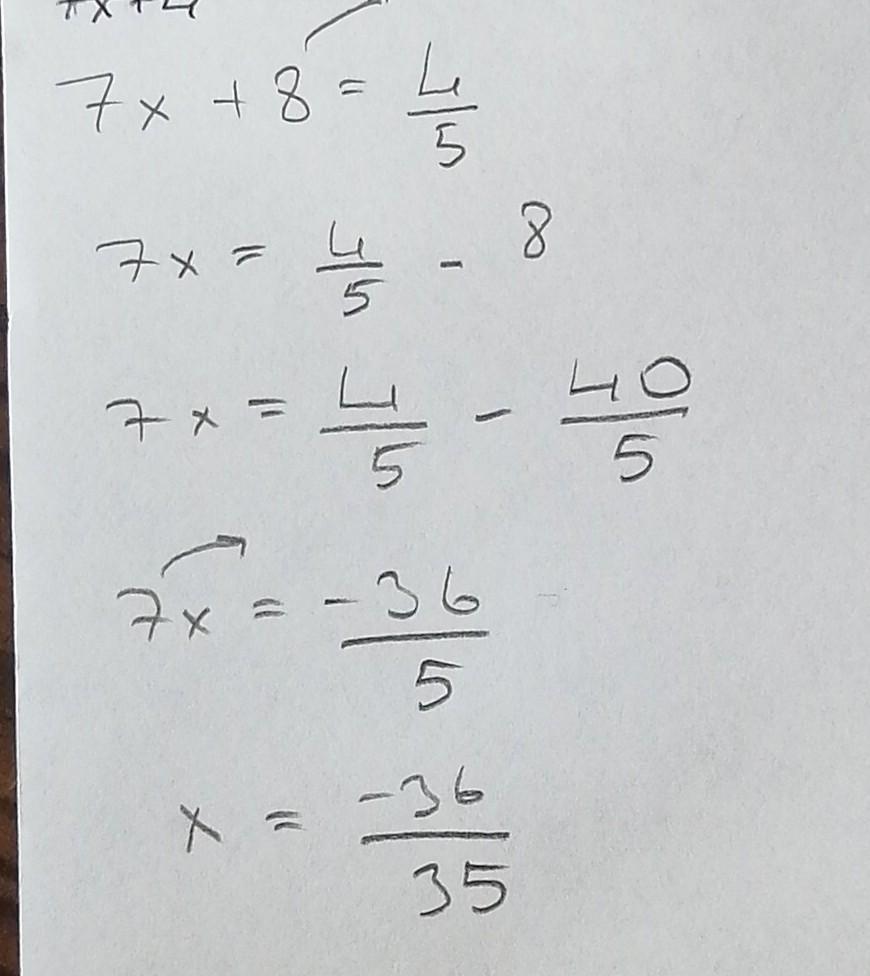 7x + 8 = 4/5
7x = 4/5 - 8
7x = 4/5 - 40/5
7x = -36/5
x = -36/35